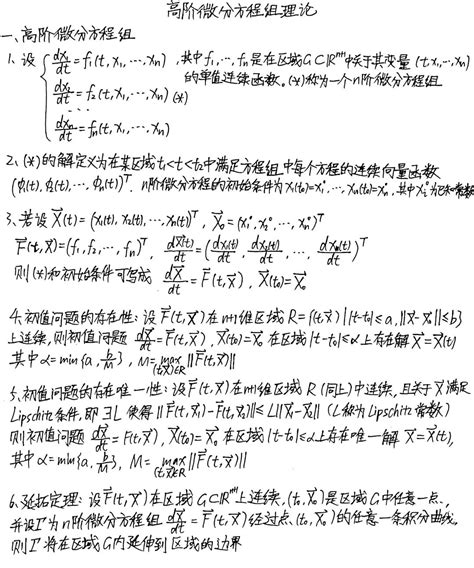 高阶微分方程组理论
一、高阶微分方程组
1、设 { dx₁/dt = f₁(t, x₁, ⋯, xₙ) ，其中 f₁, ⋯, fₙ 是在区域 G⊂ℝⁿ⁺¹ 中关于其变量 (t, x₁, ⋯, xₙ)
dx₂/dt = f₂(t, x₁, ⋯, xₙ) (*) 的单值连续函数。(*)称为一个n阶微分方程组
dxₙ/dt = fₙ(t, x₁, ⋯, xₙ)
2、(*)的解定义为在某区域 t₁<t<t₂ 中满足方程组中每个方程的连续向量函数
(φ₁(t), φ₂(t), ⋯, φₙ(t))ᵀ. n阶微分方程的初始条件为 x₁(t₀)=x₁°, ⋯, xₙ(t₀)=xₙ°, 其中 xᵢ° 为已知常数
3、若设 X⃗(t) = (x₁(t), x₂(t), ⋯, xₙ(t))ᵀ, X⃗₀ = (x₁°, x₂°, ⋯, xₙ°)ᵀ
F⃗(t, X⃗) = (f₁, f₂, ⋯, fₙ)ᵀ, dX⃗(t)/dt = (dx₁(t)/dt, dx₂(t)/dt, ⋯, dxₙ(t)/dt)ᵀ
则(*)和初始条件可写成 dX⃗/dt = F⃗(t, X⃗), X⃗(t₀) = X⃗₀
4、初值问题的存在性：设 F⃗(t, X⃗) 在 n+1 维区域 R = {(t, X⃗) | |t-t₀|≤a, ||X⃗-X⃗₀||≤b}
上连续，则初值问题 dX⃗/dt = F⃗(t, X⃗), X⃗(t₀)=X⃗₀ 在区域 |t-t₀|≤α 上存在解 X⃗=X⃗(t)
其中 α = min{a, b/M}, M = max_{(t,X⃗)∈R} ||F⃗(t, X⃗)||
5、初值问题的存在唯一性：设 F⃗(t, X⃗) 在 n+1 维区域 R (同上) 中连续，且关于 X⃗ 满足
Lipschitz 条件，即 ∃L 使得 ||F⃗(t, X⃗₁) - F⃗(t, X⃗₂)|| ≤ L||X⃗₁-X⃗₂|| (L称为Lipschitz常数)
则初值问题 dX⃗/dt = F(t, X⃗), X⃗(t₀) = X⃗₀ 在区域 |t-t₀|≤α 上存在唯一解 X⃗=X⃗(t),
其中 α = min{a, b/M}, M = max_{(t,X⃗)∈R} ||F⃗(t, X⃗)||
6、延拓定理：设 F⃗(t, X⃗) 在区域 G⊂ℝⁿ⁺¹ 上连续，(t₀, X⃗₀) 是区域G中任意一点，
并设Γ为n阶微分方程组 dX⃗/dt = F⃗(t, X⃗) 经过点 (t₀, X⃗₀) 的任意一条积分曲线，
则Γ将在区域G内延伸到区域的边界